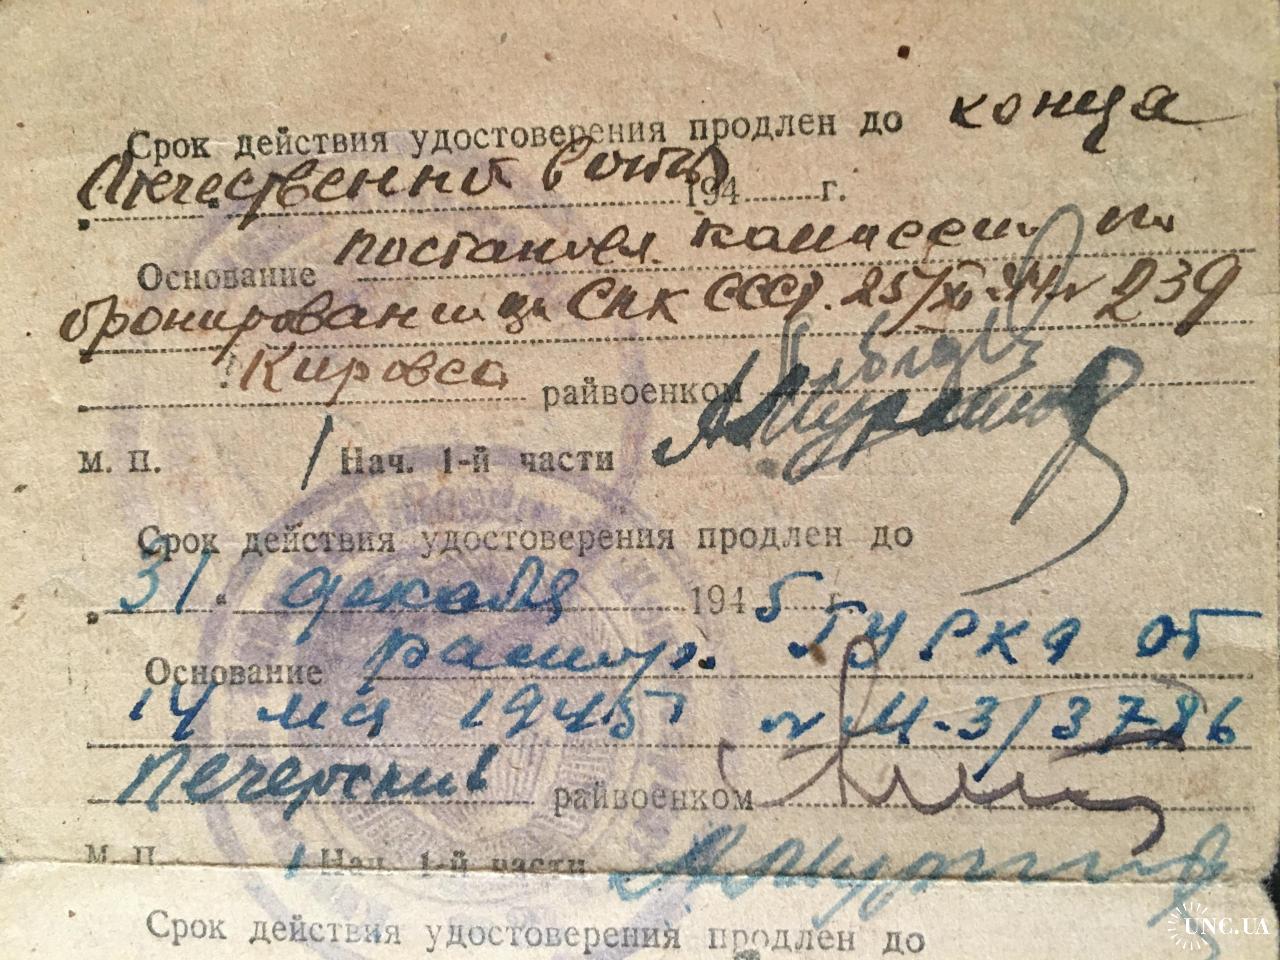 Срок действия удостоверения продлен до конца
Отечественной войны 194 г.
Основание постановл. комиссии по
бронированию СНК СССР. 25/XI-44 № 239
Кировск райвоенком
М. П. Нач. 1-й части
Срок действия удостоверения продлен до
31 декабря 1945 г.
Основание распор. от
14 мая 1945 № М-3/3786
Печерский райвоенком
М. П. Нач. 1-й части
Срок действия удостоверения продлен до
UNC.UA